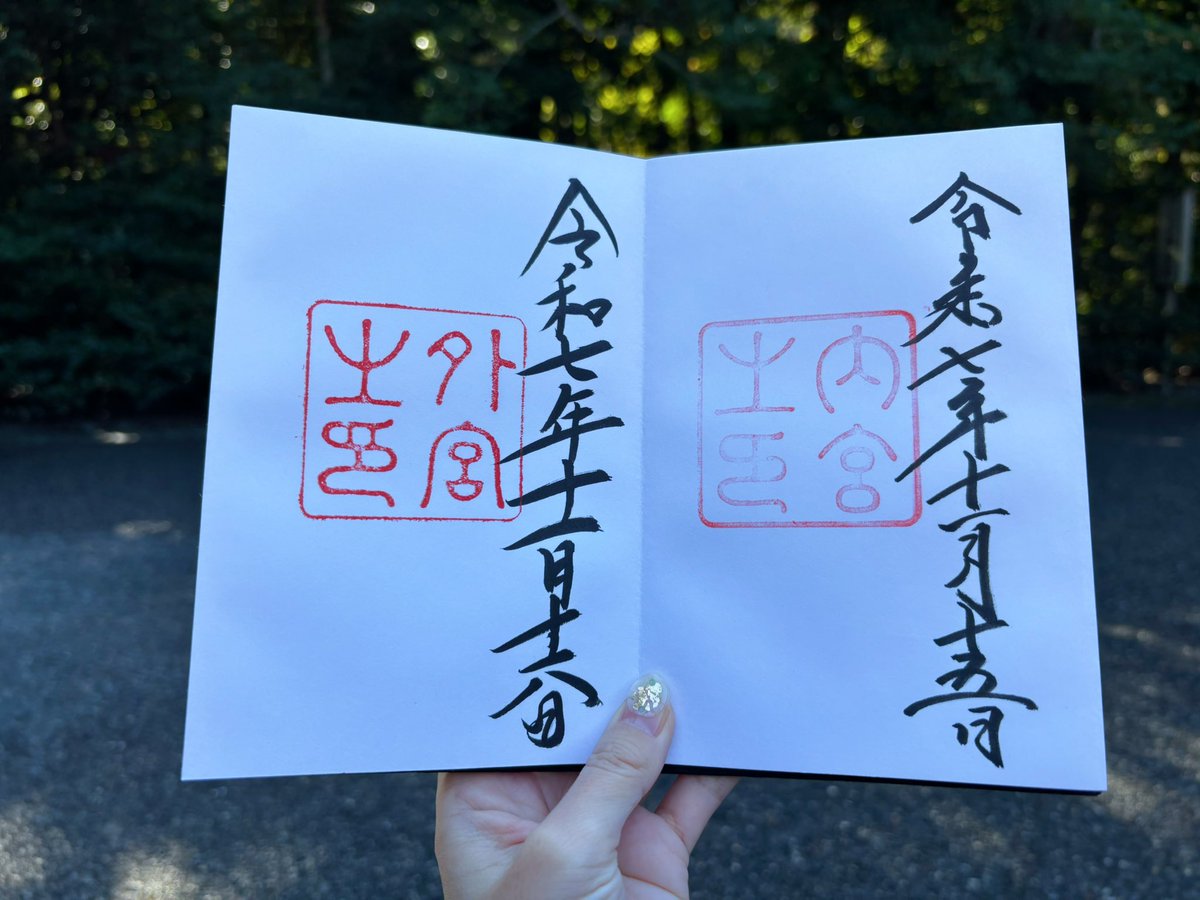 令和七年十一月十五日
内宮
之印
令和七年十一月十六日
外宮
之印